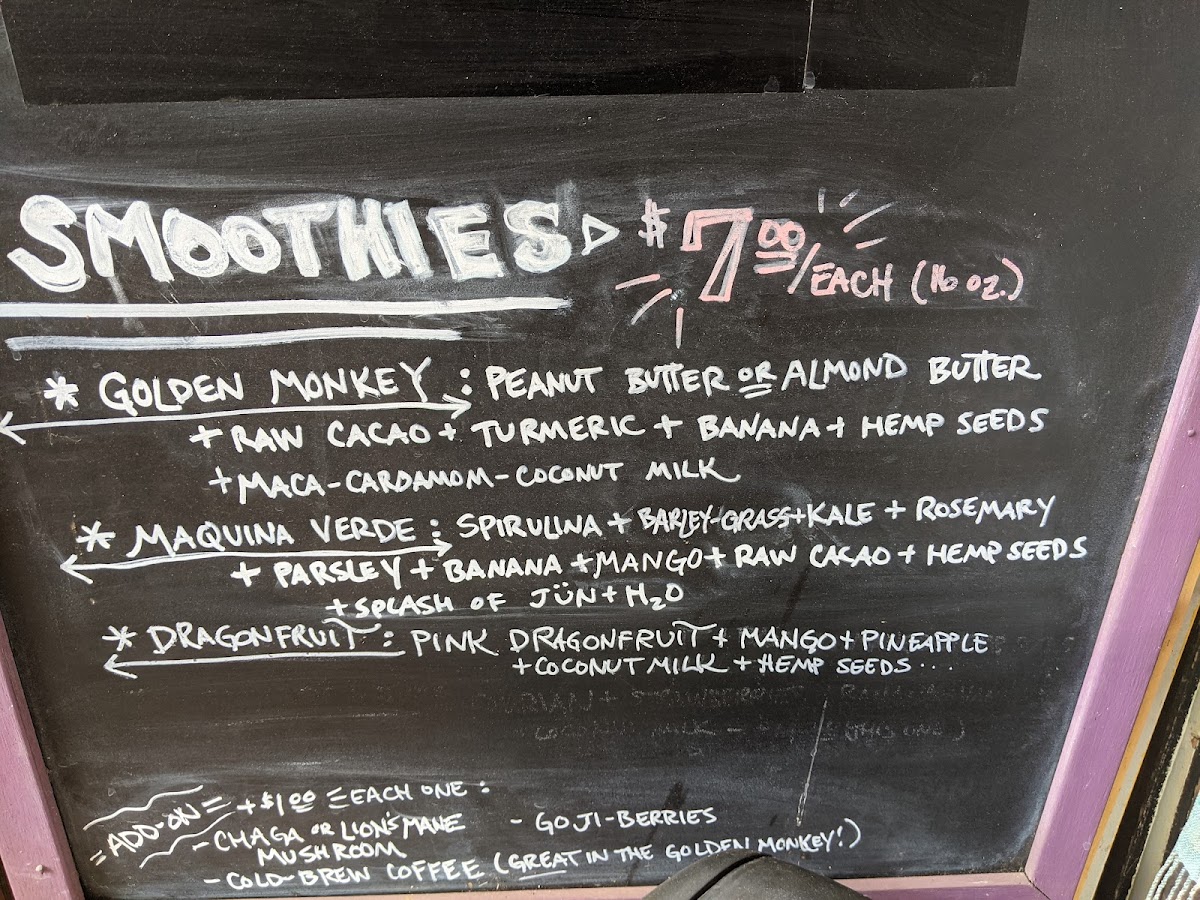 SMOOTHIES ▷ $7.00/EACH (16 OZ.)
* GOLDEN MONKEY : PEANUT BUTTER OR ALMOND BUTTER
+ RAW CACAO + TURMERIC + BANANA + HEMP SEEDS
+ MACA-CARDAMOM-COCONUT MILK
* MAQUINA VERDE : SPIRULINA + BARLEY-GRASS + KALE + ROSEMARY
+ PARSLEY + BANANA + MANGO + RAW CACAO + HEMP SEEDS
+ SPLASH OF JÜN + H2O
* DRAGONFRUIT : PINK DRAGONFRUIT + MANGO + PINEAPPLE
+ COCONUT MILK + HEMP SEEDS...
COCONUT MILK
= ADD-ON = + $1.00 EACH ONE :
- CHAGA OR LION'S MANE - GOJI-BERRIES
MUSHROOM
- COLD-BREW COFFEE (GREAT IN THE GOLDEN MONKEY!)